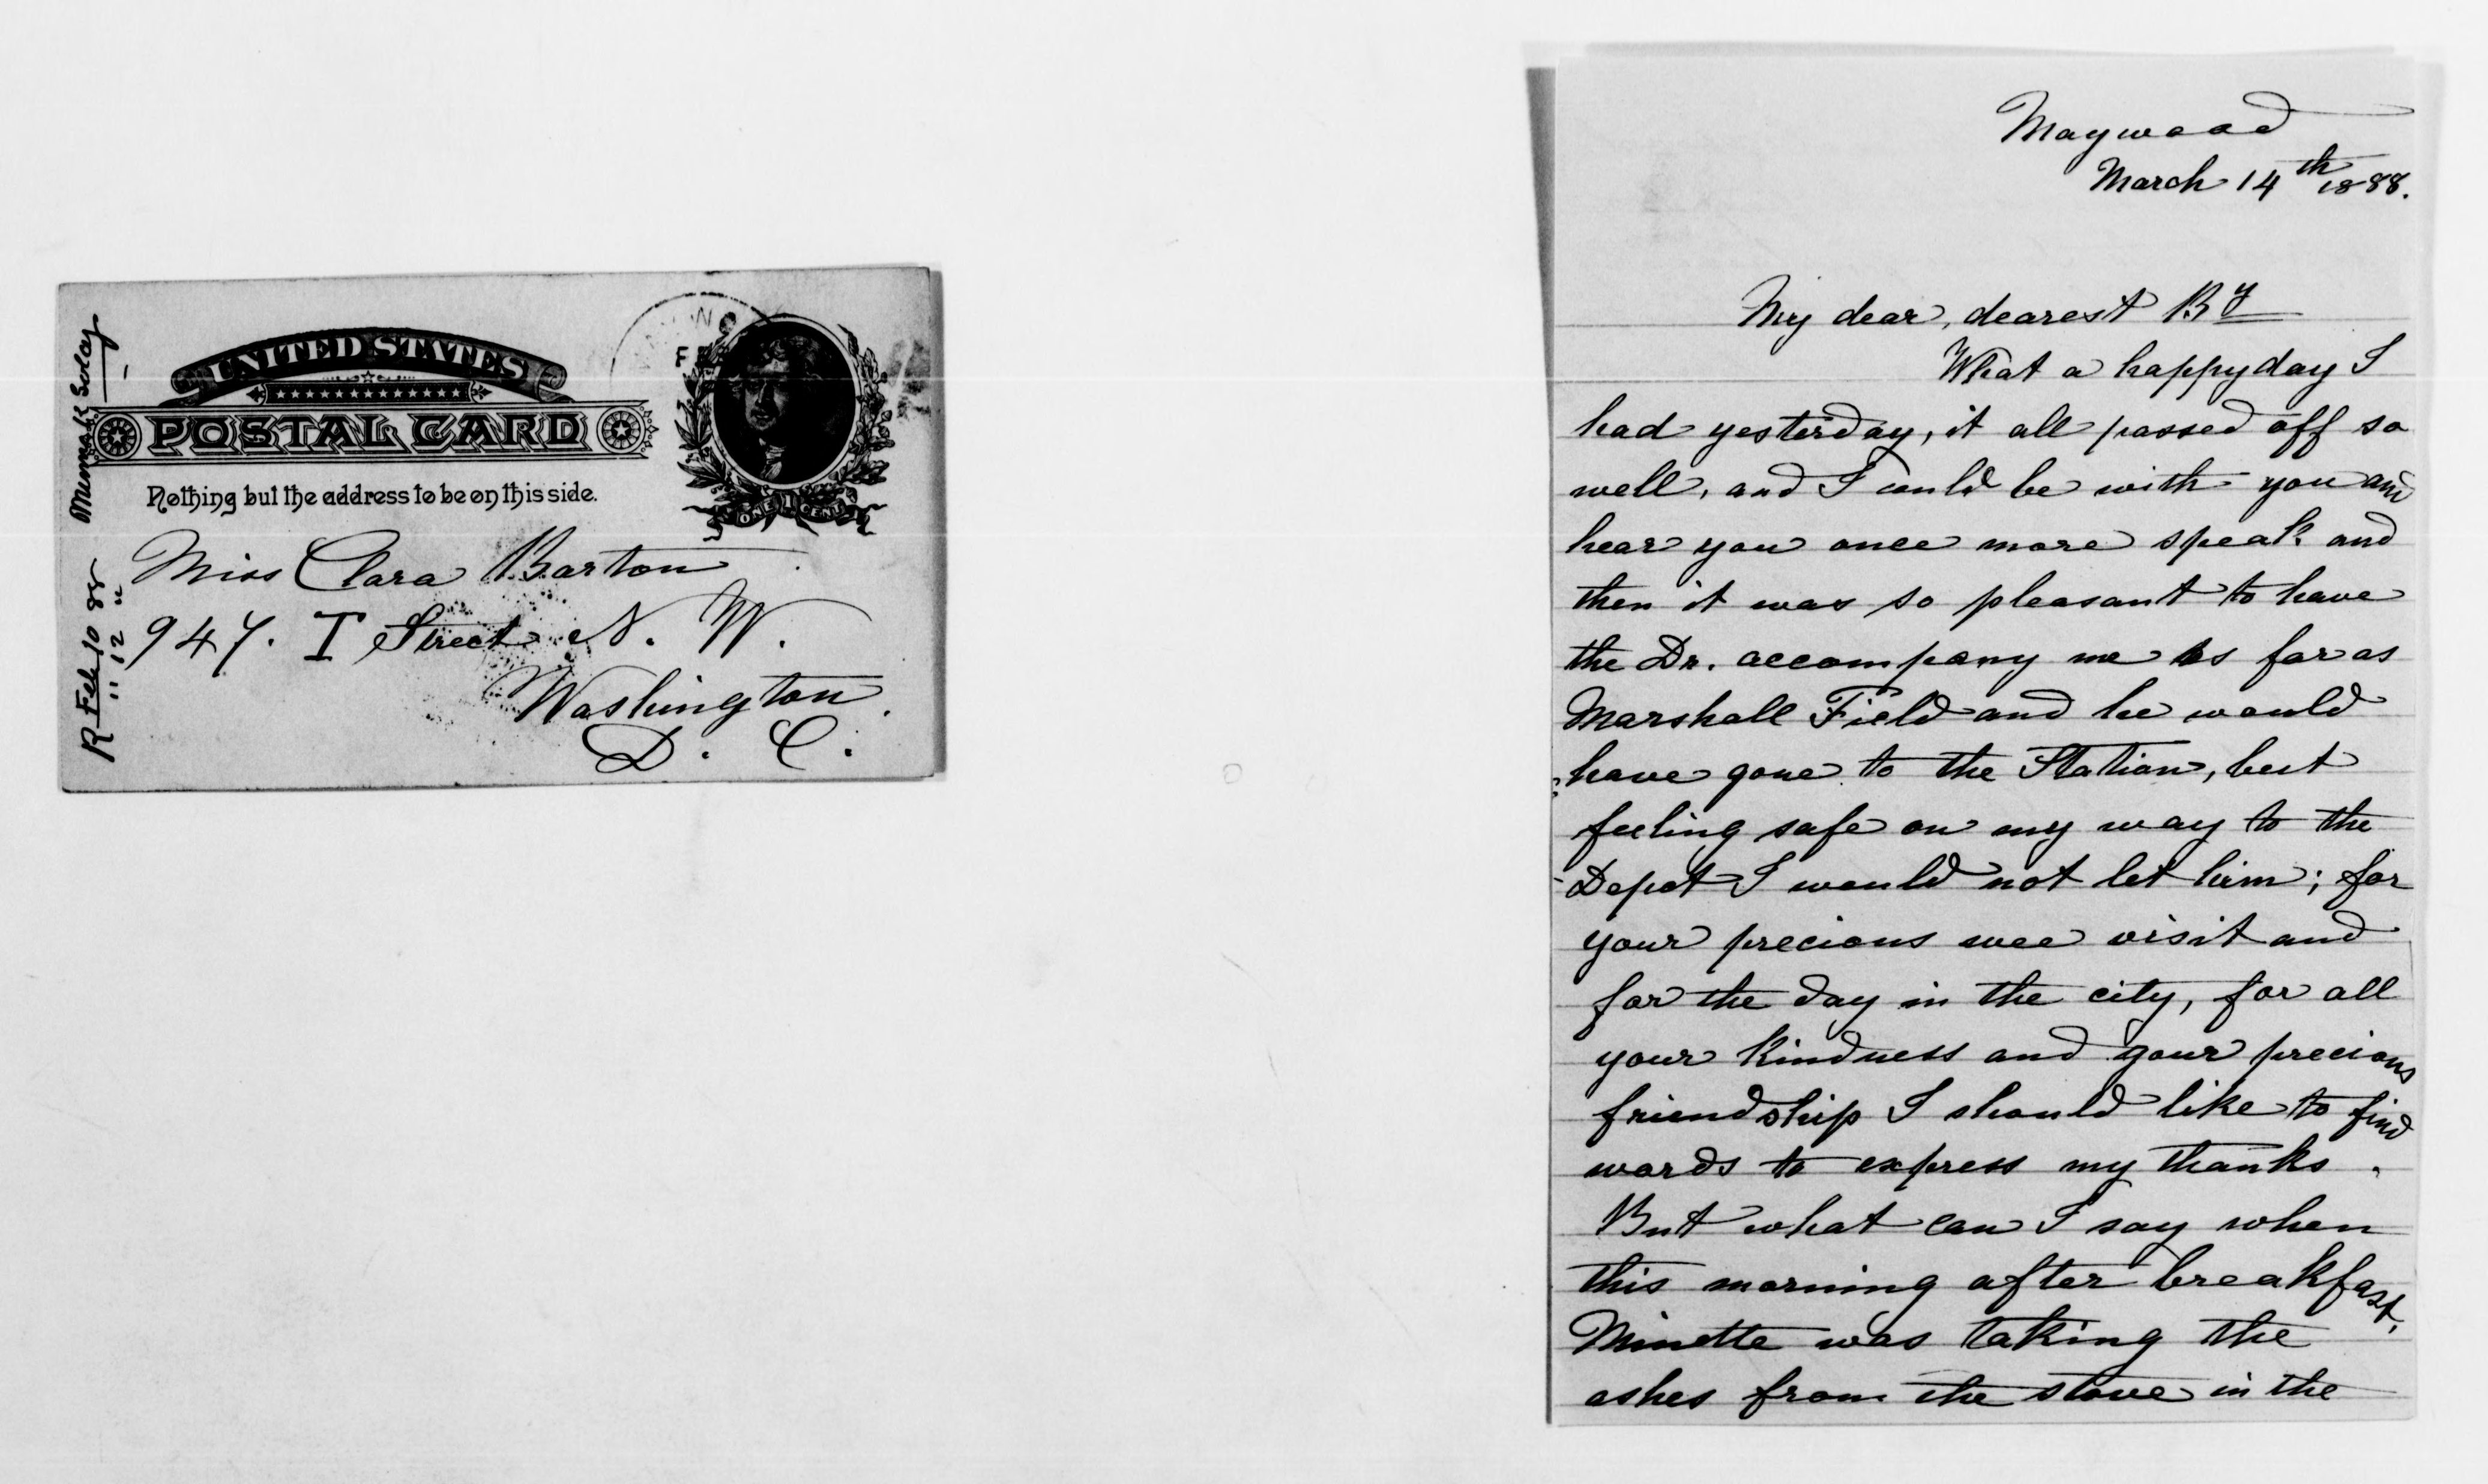 UNITED STATES
POSTAL CARD
Nothing but the address to be on this side.
ONE 1 CENT
Miss Clara Barton
947. I Street N. W.
Washington
D. C.
R Feb 10 88
" 12 "
Minna K
Maywood
March 14th 1888.
My dear, dearest By
What a happy day I
had yesterday, it all passed off so
well, and I could be with you and
hear you once more speak and
then it was so pleasant to have
the Dr. accompany me as far as
Marshall Field and he would
have gone to the Station, but
feeling safe on my way to the
Depot I would not let him; for
your precious wee visit and
for the day in the city, for all
your kindness and your precious
friendship I should like to find
words to express my thanks.
But what can I say when
this morning after breakfast,
Minette was taking the
ashes from the stove in the